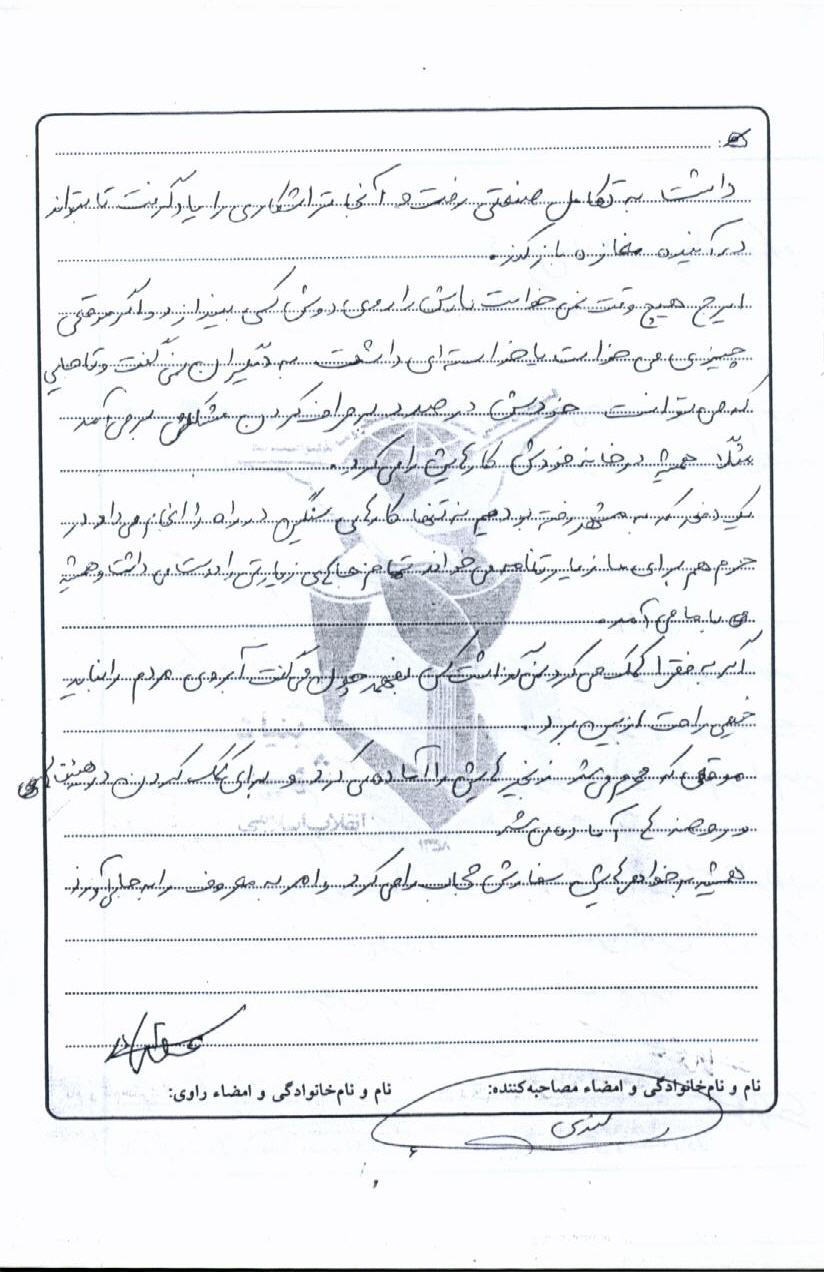 داشت به تکامل صنعتی رفت و آنجا تراشکاری را یاد گرفت تا بتواند
در آینده مغازه باز کند.
ایرج هیچ وقت نمی خواست بارش را روی دوش کسی بیندازد و اگر موقعی
چیزی می خواست یا خواسته ای داشت به دیگران نمی گفت و تا جایی
که می توانست خودش در صدد برطرف کردن مشکلش بر می آمد
مثلا همیشه در خانه خودش کارهایش را می کرد.
یک دفعه که به مشهد رفته بودیم به تنها کارهای سنگین در راه را انجام می داد و در
حرم هم برای ما زیارتنامه می خواند تمام جاهای زیارتی را دوست می داشت و همیشه
با ما می آمد.
اگر به فقرا کمک می کرد نمی گذاشت کسی بفهمد چون می گفت آبروی مردم را نباید
خیلی راحت از بین برد.
موقعی که محرم می شد زنجیر هایش را آماده می کرد و برای کمک کردن در هیئت ها
و روضه ها آماده می شد
همیشه به خواهرهایش سفارش حجاب را می کرد و امر به معروف را به جا می آورد
نام و نام خانوادگی و امضاء مصاحبه کننده:
نام و نام خانوادگی و امضاء راوی: